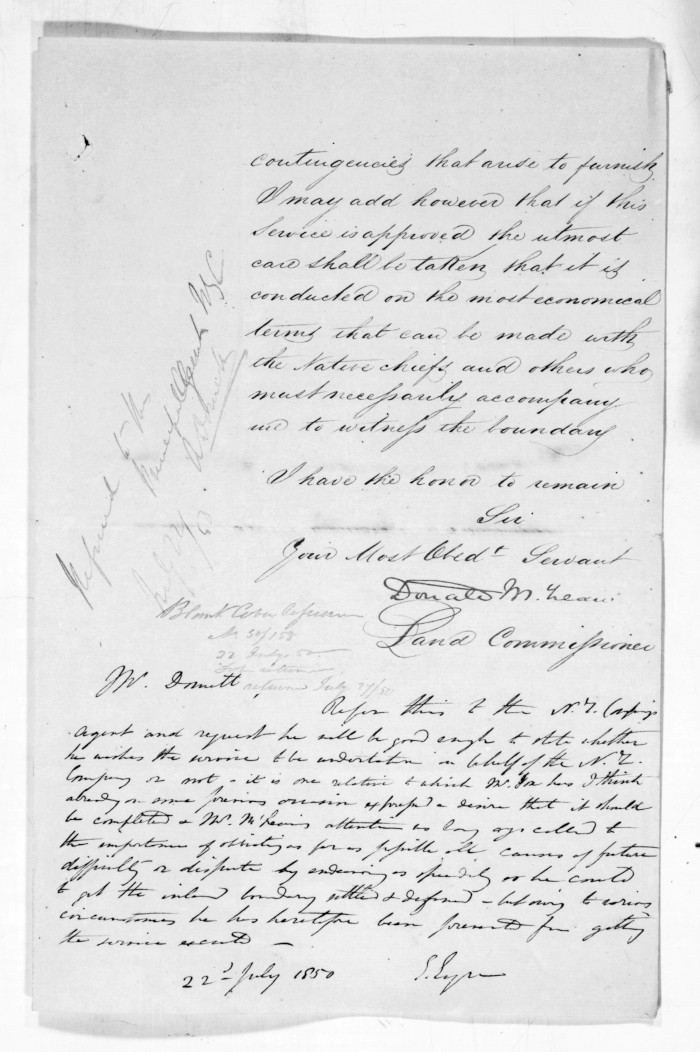 contingencies that arise to furnish
I may add however that if this
Service is approved the utmost
care shall be taken that it is
conducted on the most economical
terms that can be made with
the Native chiefs and others who
must necessarily accompany
me to witness the boundary
I have the honor to remain
Sir
Your Most Obedt Servant
Donald McLean
Land Commissioner
Referred to the
Principal Agent NZC
July 24/50
Blank Cover
No 50/158
22 July 50
return July 27/50
Mr. Domett,
Refer this to the N.Z. Company's
Agent and request he will be good enough to state whether
he wishes the service to be undertaken on behalf of the N.Z.
Company or not - it is one relative to which Mr. Fox has I think
already on some previous occasion expressed a desire that it should
be completed & Mr. McLean's attention was long ago called to
the importance of obviating as far as possible all causes of future
difficulty or dispute by endeavouring as speedily as he could
to get the inland boundary settled & defined - but owing to various
circumstances he has heretofore been prevented from getting
the service executed -
22d July 1850 E. Eyre